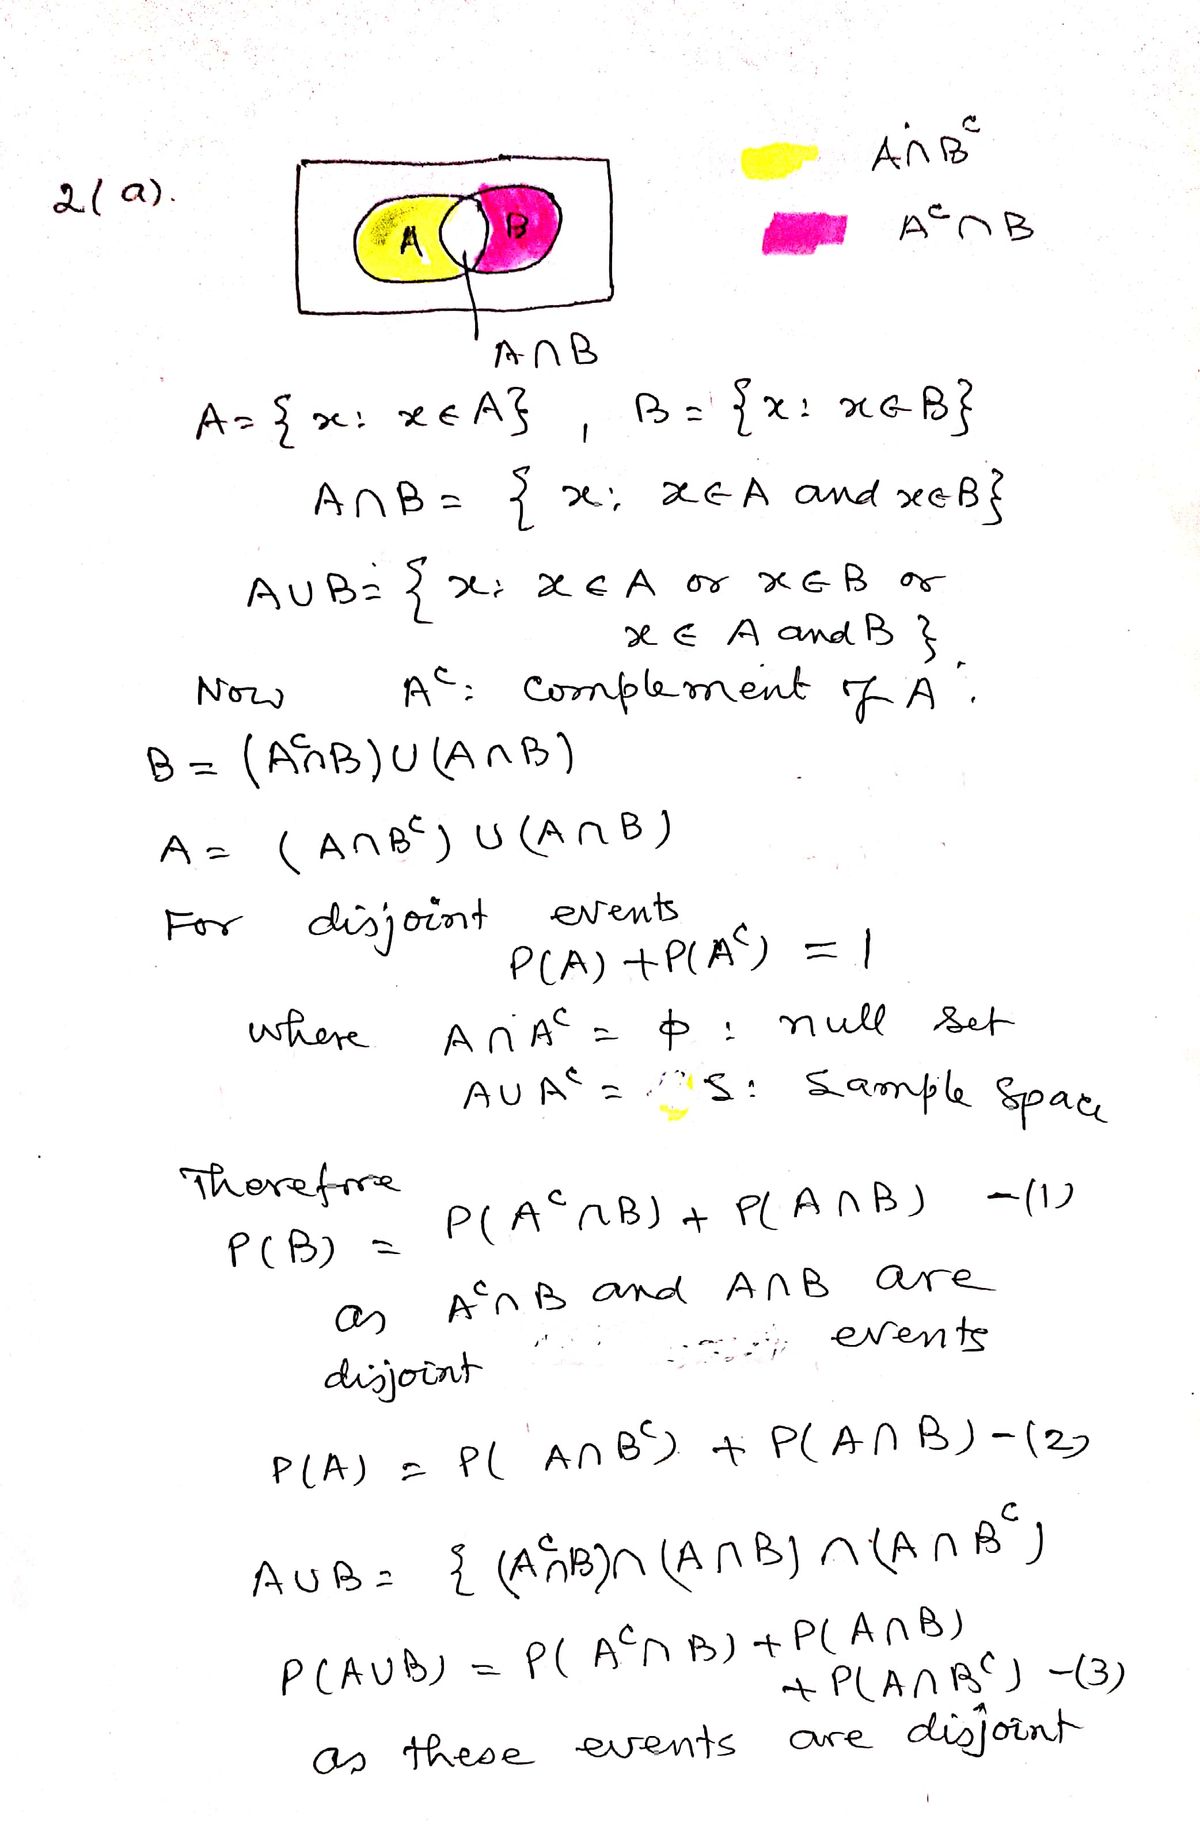 2(a).
A∩B^c
A^c∩B
A
B
A∩B
A = {x: x∈A}, B = {x: x∈B}
A∩B = {x: x∈A and x∈B}
A∪B = {x: x∈A or x∈B or
x∈ A and B}.
Now A^c: complement of A.
B = (A^c∩B)∪(A∩B)
A = (A∩B^c)∪(A∩B)
For disjoint events
P(A) + P(A^c) = 1
where A∩A^c = ϕ : null set
A∪A^c = S: Sample Space
Therefore
P(B) = P(A^c∩B) + P(A∩B) -(1)
as A^c∩B and A∩B are
disjoint events
P(A) = P(A∩B^c) + P(A∩B) -(2)
A∪B = { (A^c∩B)∩(A∩B)∩(A∩B^c)
P(A∪B) = P(A^c∩B) + P(A∩B)
+ P(A∩B^c) -(3)
as these events are disjoint